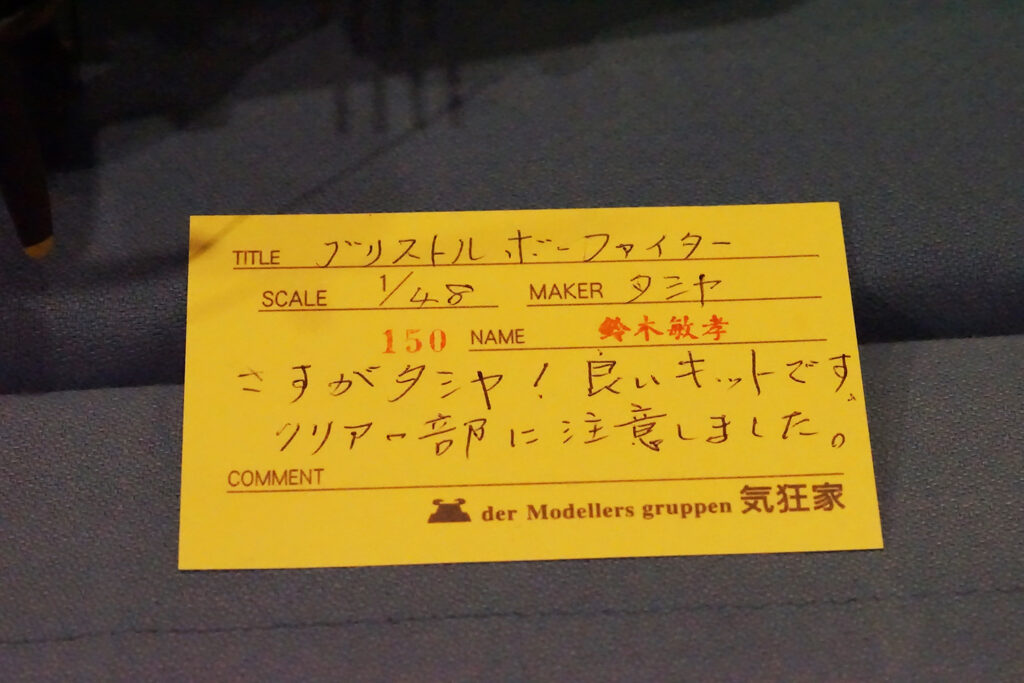 TITLE ブリストル ボーファイター
SCALE 1/48 MAKER タミヤ
150 NAME 鈴木敏孝
さすがタミヤ! 良いキットです。
クリアー部に注意しました。
COMMENT
der Modellers gruppen 気狂家